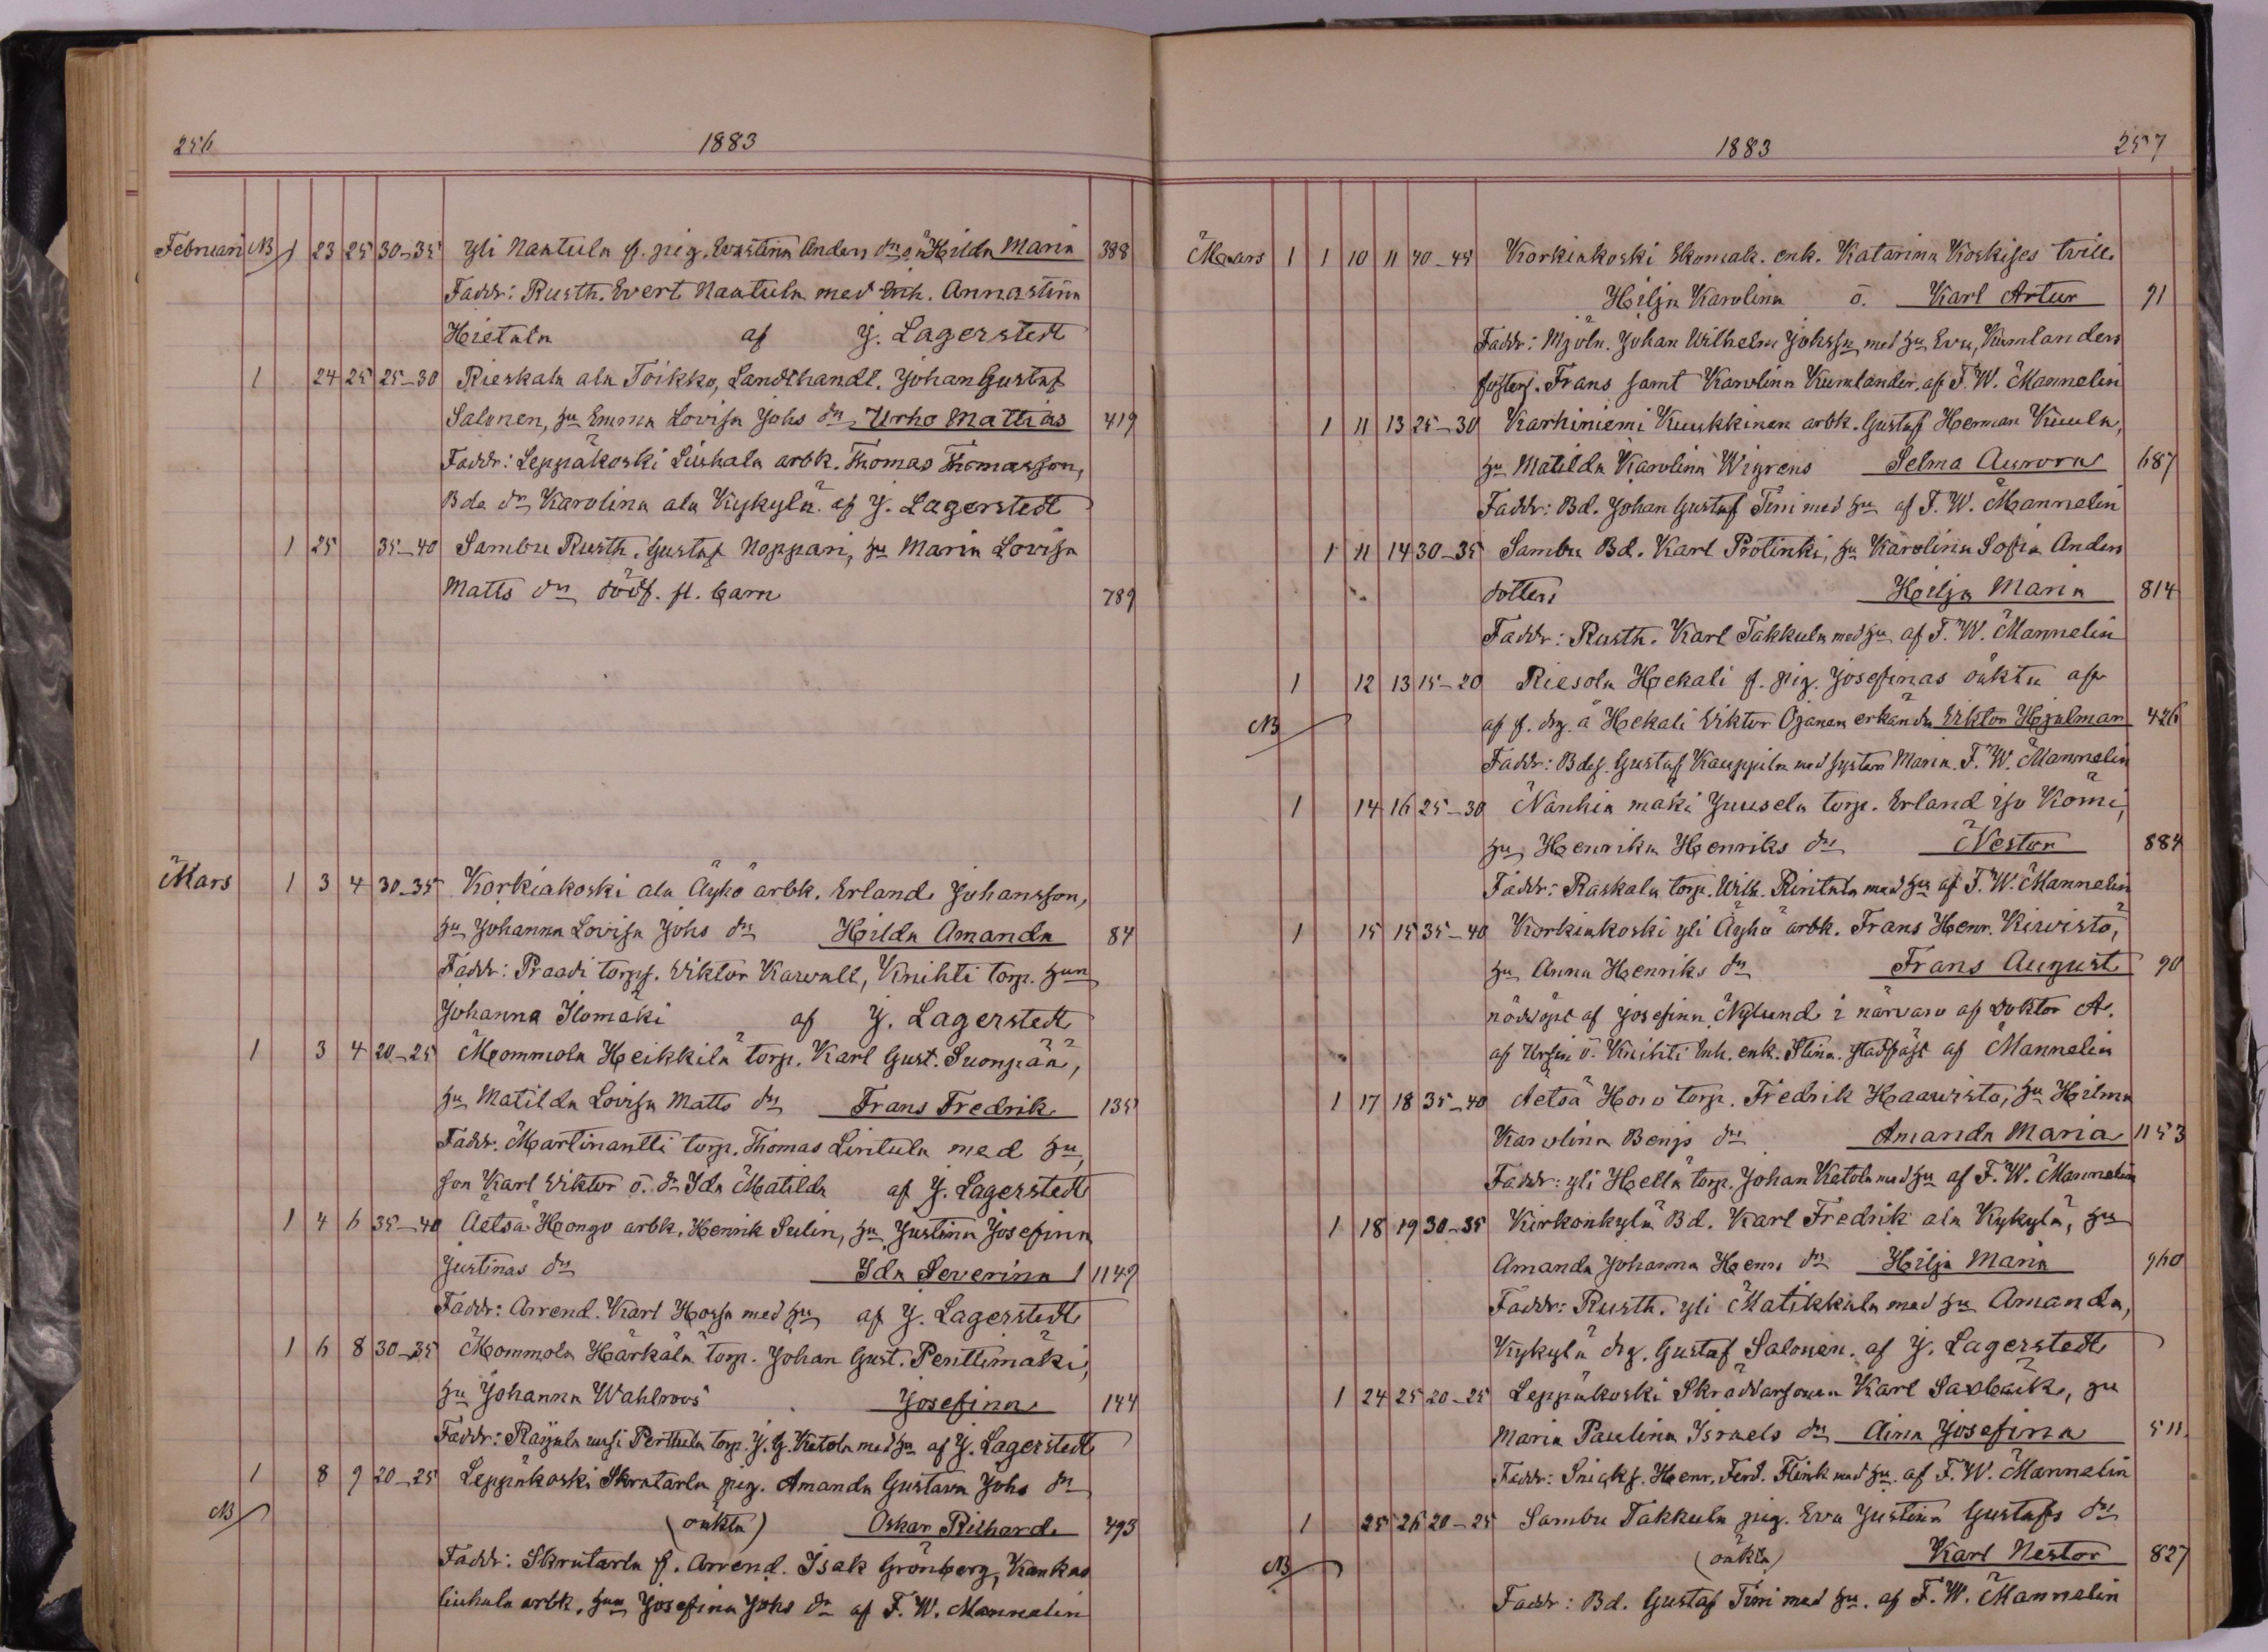 256 1883
Februari NB 1 23 25 30-35 Yli Nautula f. pig. Evastina Anders dr oä Hilda Maria 388
Faddr: Rusth. Evert Nautula med Inh. Annastina
Hietala af J. Lagerstedt
1 24 25 25-30 Rieskala ala Toikko, Landthandl. Johan Gustaf
Salonen, hu Emma Lovisa Johs dr Urho Mattias 419
Faddr: Leppäkoski Liuhala arbk. Thomas Thomasson,
Bde dr Karolina ala Kykylä af J. Lagerstedt
1 25 35-40 Sambu Rusth. Gustaf Noppari, hu Maria Lovisa
Matts dr dödf. fl. barn 789
Mars 1 3 4 30-35 Korkiakoski ala Äyhö arbk. Erland Johansson,
hu Johanna Lovisa Johs dr Hilda Amanda 84
Faddr: Praadi torps. Viktor Karvall, Knihti torp. hun
Johanna Ilomäki af J. Lagerstedt
1 3 4 20-25 Mommola Heikkilä torp. Karl Gust. Suonpää,
hu Matilda Lovisa Matts dr Frans Fredrik 135
Faddr: Martinantti torp. Thomas Lintula med hu,
son Karl Viktor o. dr Ida Matilda af J. Lagerstedt
1 4 6 35-40 Aetsä Hongo arbk. Henrik Sulin, hu Justina Josefina
Justinas dr Ida Severina 1149
Faddr: Arrend. Karl Horsa med hu af J. Lagerstedt
1 6 8 30-35 Mommola Härkälä torp. Johan Gust. Penttimäki,
hu Johanna Wahlroos Josefina 144
Faddr: Raijala uusi Perttula torp. J. G. Ketola med hu af J. Lagerstedt
1 8 9 20-25 Leppäkoski Skrutarla pig. Amanda Gustava Johs dr
NB (oäkta) Oskar Richard 493
Faddr: Skrutarla f. Arrend. Isak Grönberg, Kankas
liuhala arbk. hun Josefina Johs dr af F. W. Mannelin
1883 257
Mars 1 1 10 11 40-45 Korkiakoski Skomak. enk. Katarina Koskises tvill.
Hilja Karolina o. Karl Artur 91
Faddr: Mjöln. Johan Wilhelm Johsson med hu Eva, Kumlanders
fosters. Frans samt Karolina Kumlander, af F. W. Mannelin
1 11 13 25-30 Karhiniemi Kuukkinen arbk. Gustaf Herman Kuula,
hu Matilda Karolina Wigrens Selma Aurora 687
Faddr: Bd. Johan Gustaf Timi med hu af F. W. Mannelin
1 11 14 30-35 Sambu Bd. Karl Prötinki, hu Karolina Sofia Anders
dotters Hilja Maria 814
Faddr: Rusth. Karl Takkula med hu af F. W. Mannelin
1 12 13 15-20 Riesola Hekali f. pig. Josefinas oäkta af
NB af f. drg. å Hekali Viktor Ojanen erkända Viktor Hjalmar 426
Faddr: Bdes. Gustaf Kauppila med systern Maria. F. W. Mannelin
1 14 16 25-30 Nanhia mäki Juusela torp. Erland iso Komi,
hu Henrika Henriks dr Nestor 884
Faddr: Raskala torp. Wilh. Rintala med hu af F. W. Mannelin
1 15 15 35-40 Korkiakoski yli Äyhö arbk. Frans Henr. Kivistö,
hu Anna Henriks dr Frans August 90
nöddöpt af Josefina Nylund i närvaro af Doktor A.
af Ursin o. Knihti Inh. enk. Stina. stadfäst af Mannelin
1 17 18 35-40 Aetsä Horo torp. Fredrik Haavisto, hu Hilma
Karolina Benjs dr Amanda Maria 1153
Faddr: yli Hellä torp. Johan Ketola med hu af F. W. Mannelin
1 18 19 30-35 Kirkonkylä Bd. Karl Fredrik ala Kykylä, hu
Amanda Johanna Henr dr Hilja Maria 960
Faddr: Rusth. yli Matikkala med hu Amanda,
Kykylä drg. Gustaf Salonen. af J. Lagerstedt
1 24 25 20-25 Leppäkoski Skräddarsonen Karl Saxbäck, hu
Maria Paulina Israels dr Aina Josefina 511
Faddr: Snicks. Henr. Ferd. Flink med hu af F. W. Mannelin
1 25 26 20-25 Sambu Takkula pig. Eva Justina Gustafs dr
NB (oäkta) Karl Nestor 827
Faddr: Bd. Gustaf Timi med hu. af F. W. Mannelin